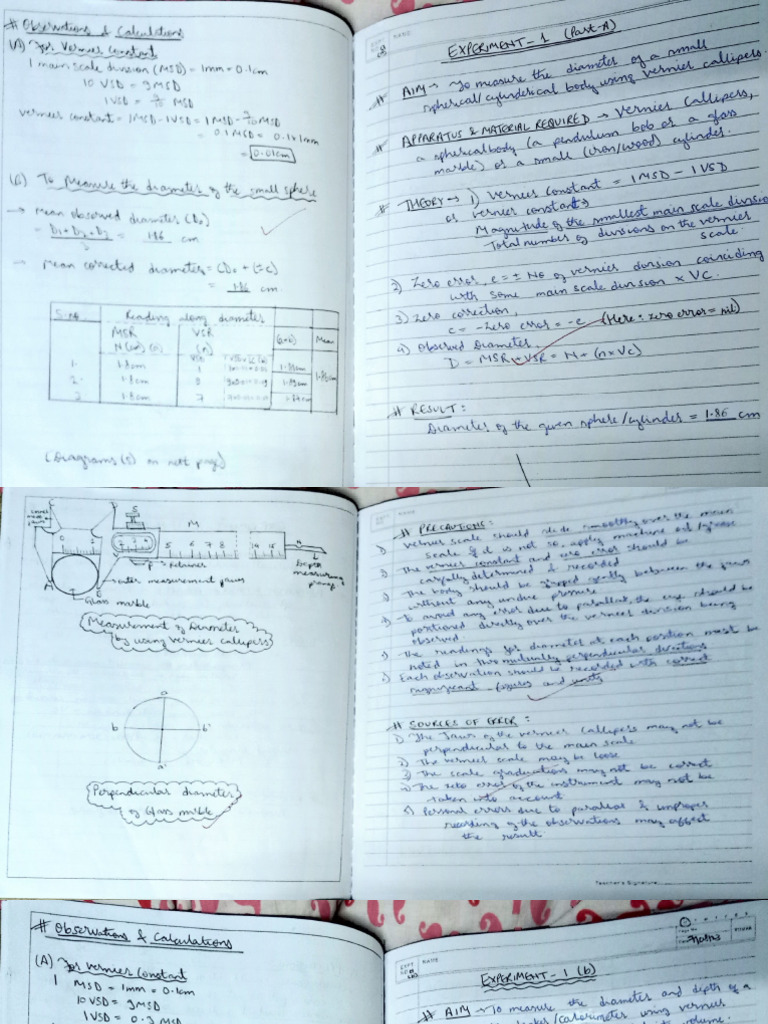 # Observations & Calculations
(A) For Vernier Constant
1 main scale division (MSD) = 1mm = 0.1cm
10 VSD = 9MSD
1VSD = 9/10 MSD
vernier constant = 1MSD - 1VSD = 1MSD - 9/10 MSD
= 0.1MSD = 0.1x1mm
= 0.01cm
To Measure the diameter of the small sphere
→ Mean observed diameter (D₀)
= D1 + D2 + D3 / 3 = 1.86 cm
→ Mean corrected diameter = (D₀ + (±c)
= 1.86 cm.
S.No Reading along diameter
MSR VSR (a+b) Mean
N (cm) (a) (n)
1. 1.8cm 1
2. 1.8cm
3 1.8cm 7
(Diagrams(s) on next page)
EXPERIMENT - 1 (Part-A)
# AIM → To measure the diameter of a small
spherical/cylinderical body using vernier callipers.
# APPARATUS & MATERIAL REQUIRED → Vernier Callipers,
a spherical body (a pendulum bob or a glass
marble) or a small (iron/wood) cylinder.
# THEORY → 1) Vernier constant = 1MSD - 1VSD
or vernier constant
Magnitude of the smallest main scale division
Total number of divisions on the vernier
scale.
2) Zero error, e = ± No of vernier division coinciding
with some main scale division × VC.
3) Zero correction,
c = -Zero error = -e (Here: zero error = nil)
4) Observed Diameter,
D = MSR + VSR = N + (n×Vc)
# RESULT:
Diameter of the given sphere/cylinder = 1.86 cm
S
M
0 1 5 6 7 8 14 15
P → Retainer
Depth
measuring
outer measurement jaws
A B
Glass marble
Measurement of Diameter
by using vernier callipers
a
b b'
a'
Perpendicular diameter
of Glass marble
# PRECAUTIONS:
1) Vernier scale should slide smoothly over the main
scale if it is not so, apply machine oil/grease
The vernier constant and zero error should be
carefully determined & recorded
The body should be gripped gently between the jaws
without any undue pressure
To avoid any error due to parallax, the eye should be
positioned directly over the vernier division being
observed
The readings for diameter at each position must be
noted in two mutually perpendicular directions
Each observation should be recorded with correct
significant figures and units
# SOURCES OF ERROR:
1) The Jaws of the vernier callipers may not be
perpendicular to the main scale
2) The vernier scale may be loose
3) The scale graduations may not be correct
The zero error of the instrument may not be
taken into account
5) Personal errors due to parallax & improper
recording of the observations may affect
the result.
Teacher's Signature
# Observations & Calculations
(A) For vernier constant
1 MSD = 1mm = 0.1cm
10 VSD = 9MSD
1VSD = 0.9 MSD
NAME
EXPERIMENT - 1 (b)
# AIM → To measure the diameter and depth of a